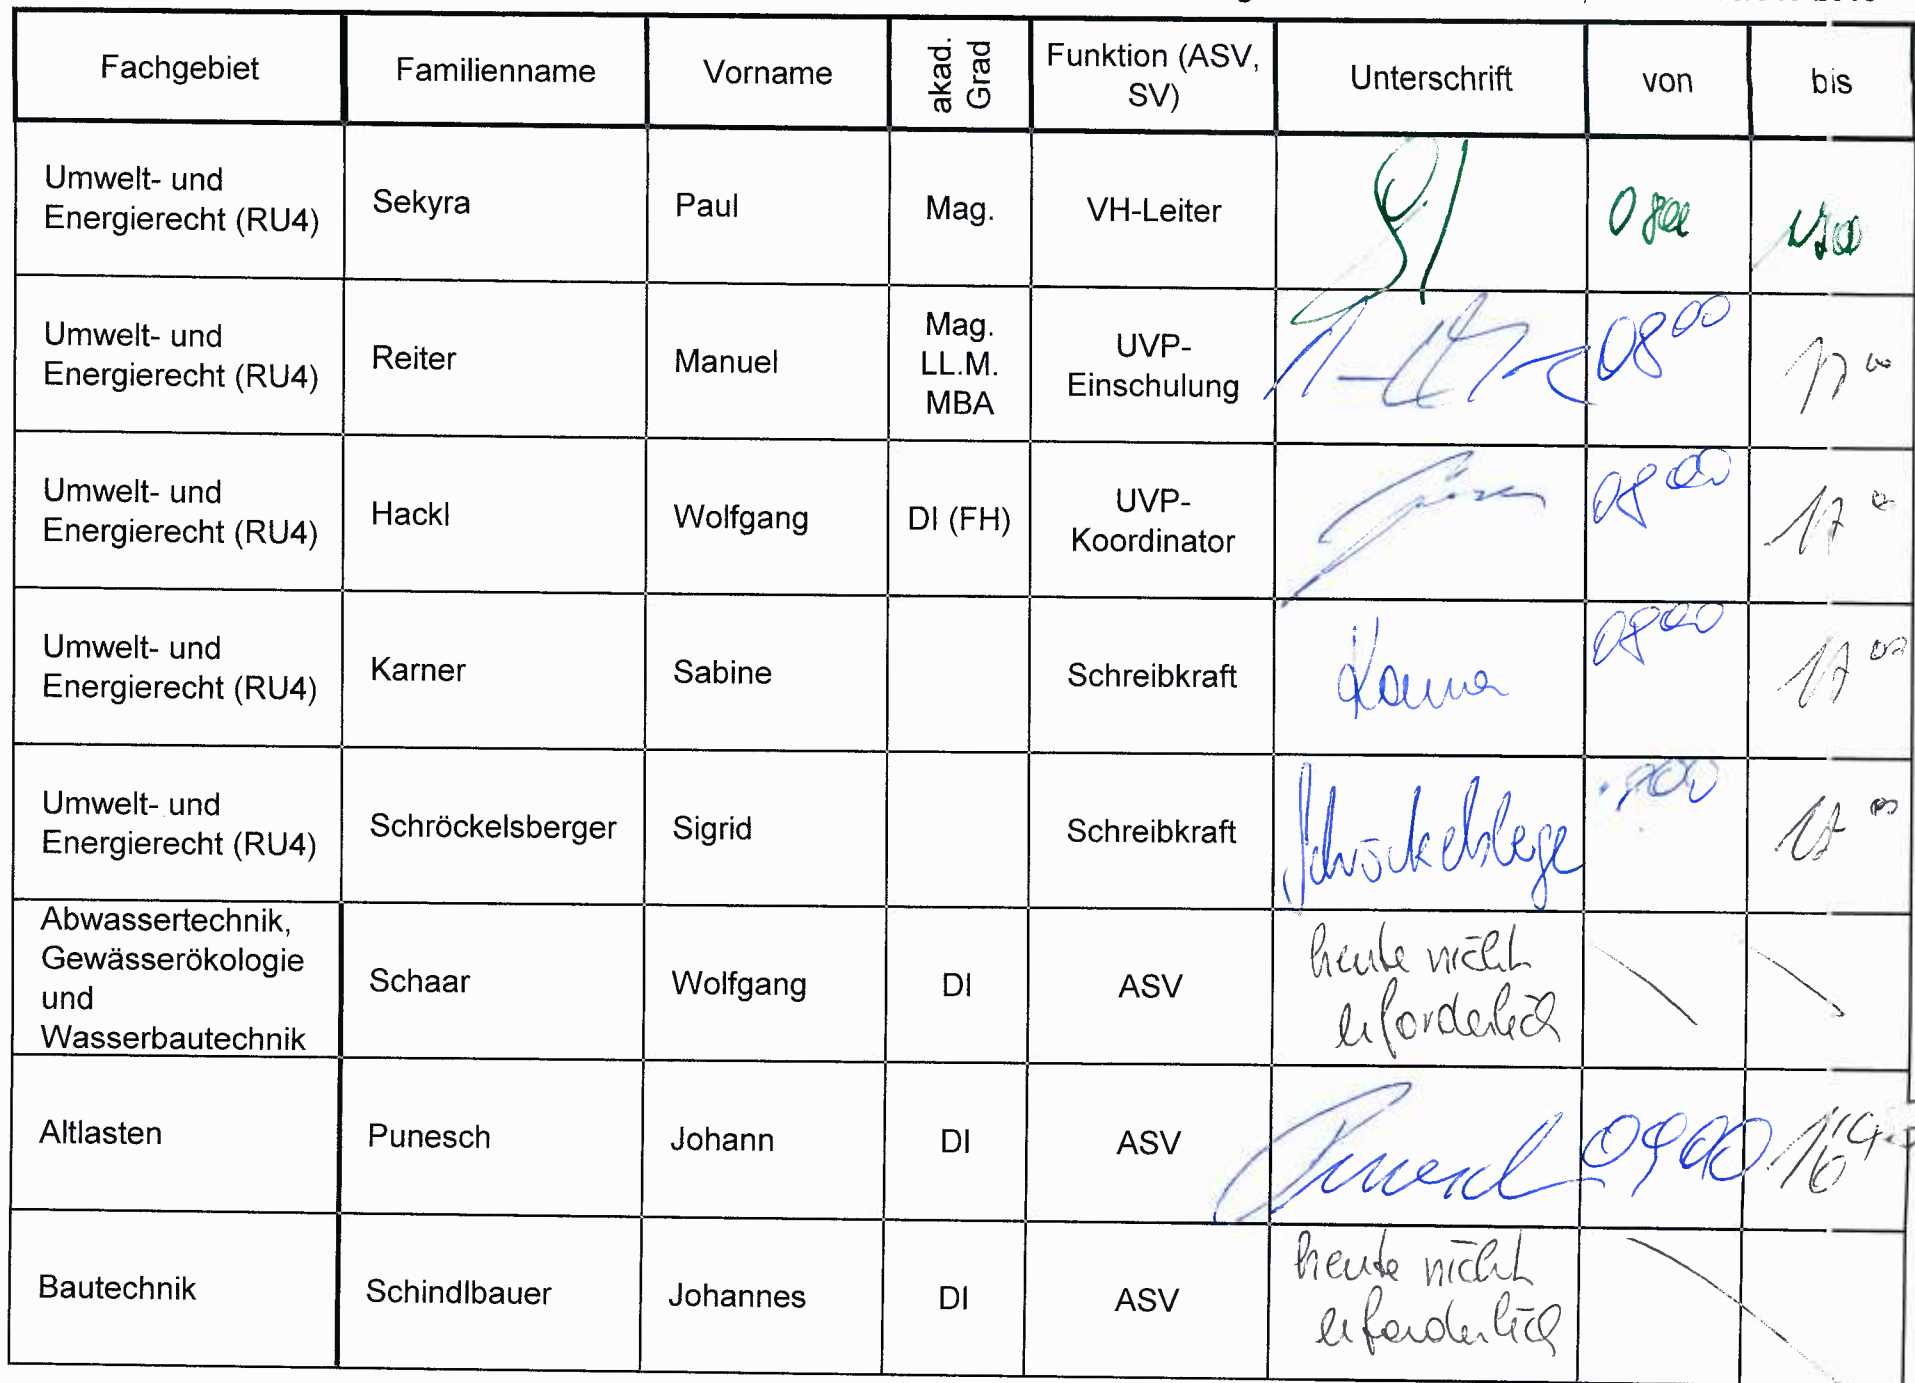 Fachgebiet Familienname Vorname akad. Grad Funktion (ASV, SV) Unterschrift von bis
Umwelt- und
Energierecht (RU4) Sekyra Paul Mag. VH-Leiter 0800 1700
Umwelt- und
Energierecht (RU4) Reiter Manuel Mag. LL.M. MBA UVP-Einschulung 08 00 17 00
Umwelt- und
Energierecht (RU4) Hackl Wolfgang DI (FH) UVP-Koordinator 08 00 17 00
Umwelt- und
Energierecht (RU4) Karner Sabine Schreibkraft Karner 08 00 17 00
Umwelt- und
Energierecht (RU4) Schröckelsberger Sigrid Schreibkraft Schröckelsberger 17 00
Abwassertechnik,
Gewässerökologie
und
Wasserbautechnik Schaar Wolfgang DI ASV heute nicht erforderlich
Altlasten Punesch Johann DI ASV Punesch 09 00
Bautechnik Schindlbauer Johannes DI ASV heute nicht erforderlich